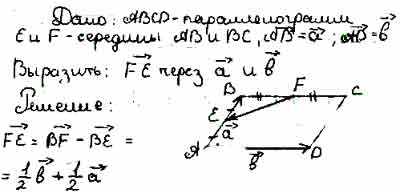 Дано: ABCD - параллелограмм
E и F - середины AB и BC, AB = a; AD = b
Выразить: FE через a и b
Решение:
FE = BF - BE =
= 1/2 b + 1/2 a
B F C
E
a
A b D